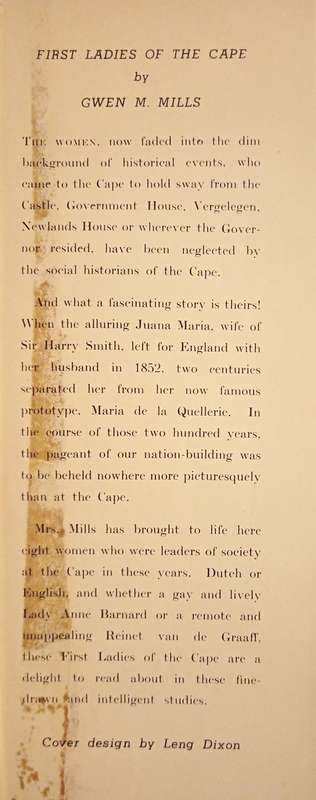 FIRST LADIES OF THE CAPE
by
GWEN M. MILLS
THE WOMEN, now faded into the dim
background of historical events, who
came to the Cape to hold sway from the
Castle, Government House, Vergelegen,
Newlands House or wherever the Gover-
nor resided, have been neglected by
the social historians of the Cape.
And what a fascinating story is theirs!
When the alluring Juana Maria, wife of
Sir Harry Smith, left for England with
her husband in 1852, two centuries
separated her from her now famous
prototype, Maria de la Quellerie. In
the course of those two hundred years,
the pageant of our nation-building was
to be beheld nowhere more picturesquely
than at the Cape.
Mrs. Mills has brought to life here
eight women who were leaders of society
at the Cape in these years. Dutch or
English, and whether a gay and lively
Lady Anne Barnard or a remote and
unappealing Reinet van de Graaff,
these First Ladies of the Cape are a
delight to read about in these fine-
drawn and intelligent studies.
Cover design by Leng Dixon